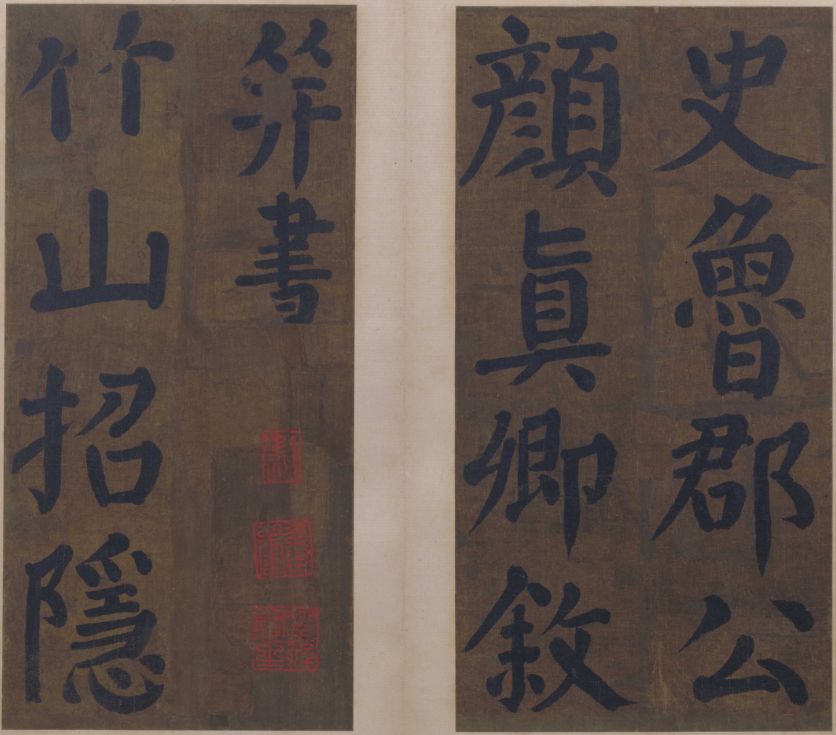 史魯郡公
顏真卿敘
筭書
竹山招隱